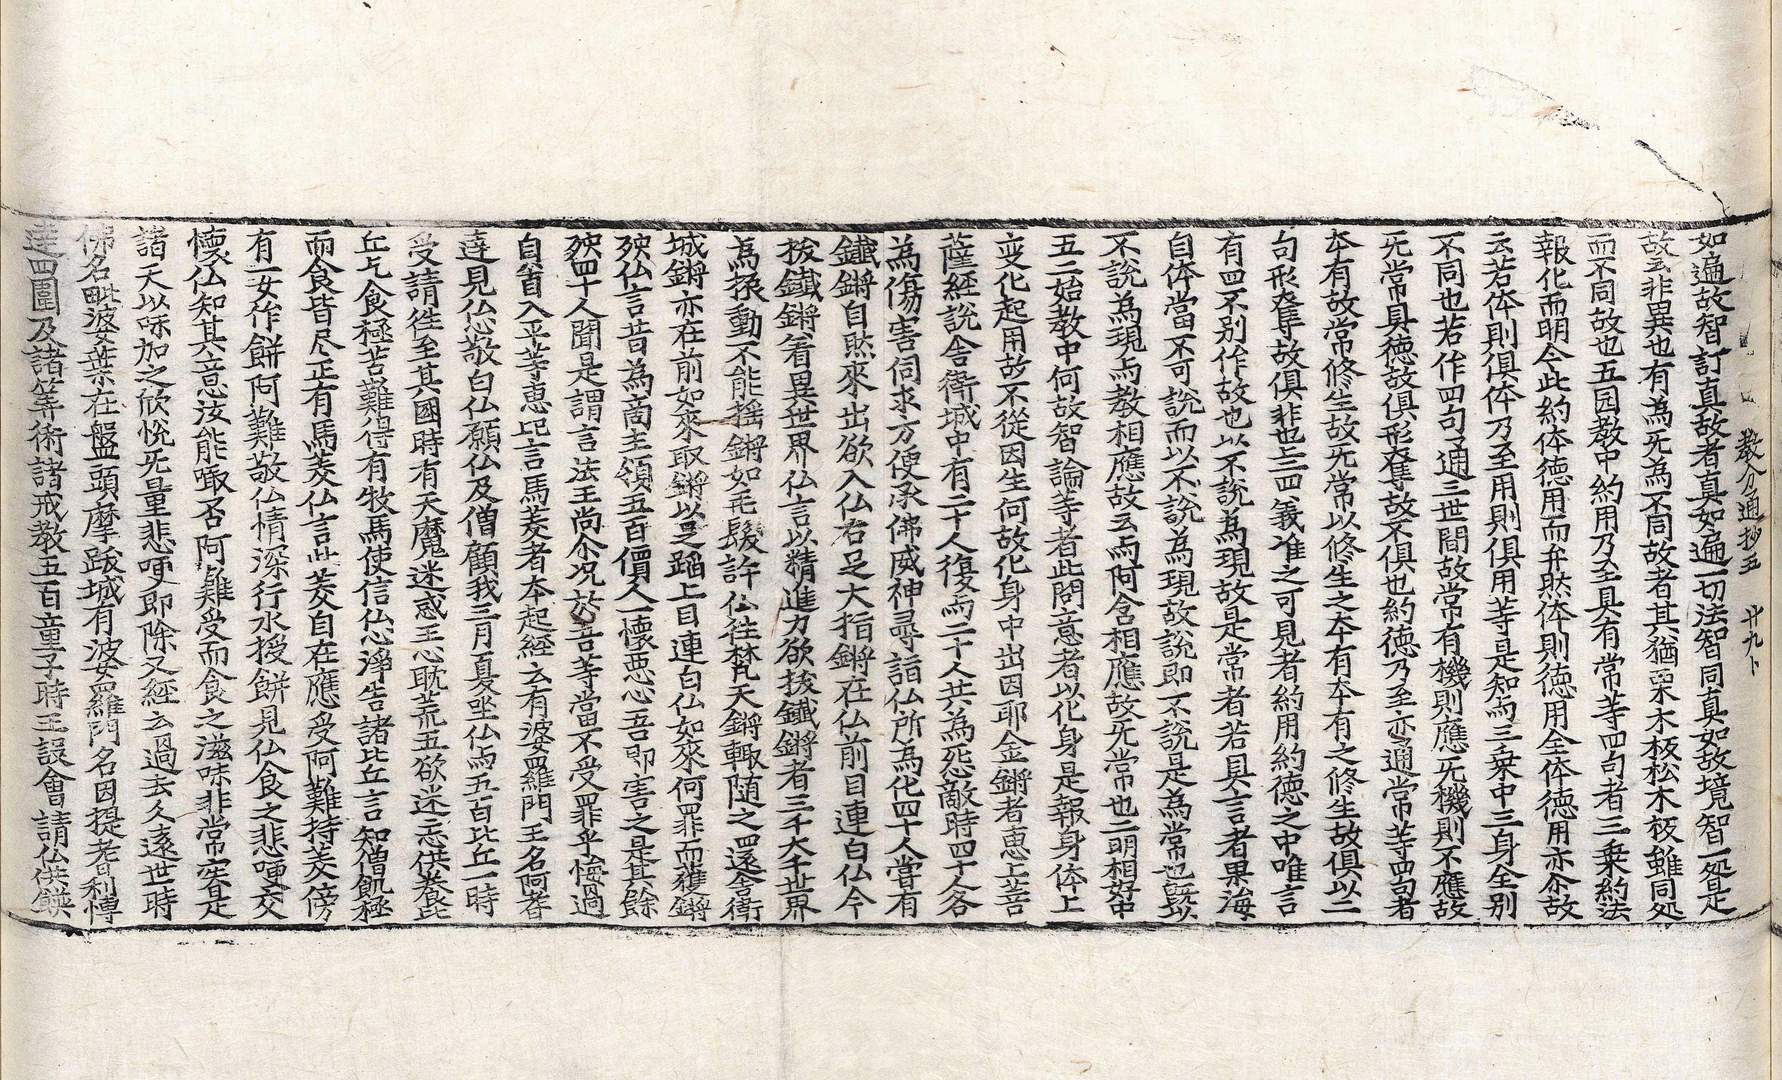 教分通抄五　廿九卜
如遍故智訂真故者真如遍一切法智同真如故境智一処是
故云非異也有為无為不同故者其猶栗木板松木板雖同処
而不同故也五囩教中約用乃至具有常等四句者三乗約法
報化而明今此約体徳用而弁然体則徳用全体徳用亦尒故
云若体則俱体乃至用則俱用等是知而三乗中三身全別
不同也若作四句通三世間故常有機則應无機則不應故
无常具徳故俱形奪故不俱也約徳乃至亦通常等四句者
本有故常修生故无常以修生之本有本有之修生故俱以二
句形奪故俱非也上四義准之可見者約用約徳之中唯言
有四不別作故也以不說為現故是常者若具言者果海
自体當不可說而以不說為現故說即不說是為常也旣以
不說為現与教相應故云与阿含相應故无常也二明相好中
五二始教中何故智論等者此問意者以化身是報身体上
变化起用故不從因生何故化身中出因耶金鏘者惠上菩
薩經說舍衛城中有二十人復与二十人共為惌敵時四十人各
為傷害伺求方便承佛威神尋詣仏所為化四十人當有
鐵鏘自然來出欲入仏右足大指鏘在仏前目連白仏今
拔鐵鏘着異世界仏言以精進力欲拔鐵鏘者三千大千世界
為振動不能摇鏘如毛髮許仏往梵天鏘輙随之四還舍衛
城鏘亦在前如來取鏘以足蹈上目連白仏如來何罪而獲鏘
殃仏言昔為啇主領五百價人一懷惡心吾即害之是其餘
殃四十人聞是謂言法王尚尒况於吾等當不受罪乎悔過
自首入平等惠記言馬麦者本起經云有婆羅門王名阿耆
達見仏心敬白仏願仏及僧顧我三月夏坐仏与五百比丘一時
受請徃至其國時有天魔迷惑王心耽荒五欲迷忘供養比
丘乞食極苦難得有牧馬使信仏心淨告諸比丘言知僧飢極
而食皆尽正有馬麦仏言此麦自在應受阿難持麦傍
有一女作餅阿難敬仏情深行水授餅見仏食之悲哽交
懷仏知其意汝能噉否阿難受而食之滋味非常實是
諸天以味加之欣悦无量悲哽即除又經云過去久遠世時
佛名毗婆葉在盤頭摩跋城有波婆羅門名因提耆利慱
達四圍及諸筭術諸戒教五百童子時王設會請仏供饌